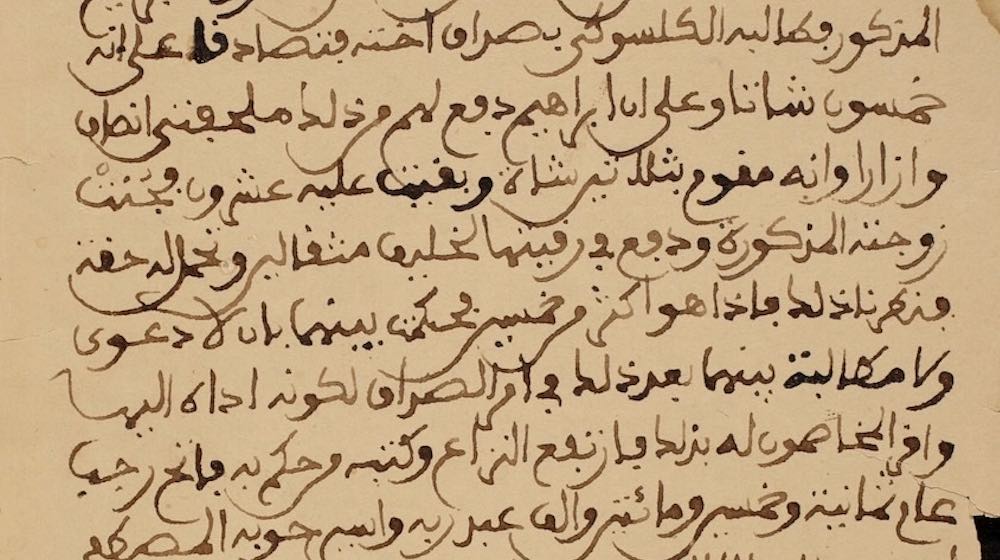 المذكور فطالبه الكلسوكي بصداق اخته فتصادقا على انه
خمسون شاتا وعلى ان ابراهيم دفع لهم من ذلك ملحفتي انصاف
وازارا وانه مقوم بثلاثين شاة وبقيت عليه عشرون فجئت
زوجته المذكورة ودفع في رقبتها لخليف مثقالين وتحمل له حقة
فنظرنا ذلك فاذا هو اكثر من خمسين فحكمت بينهما بان لا دعوى
ولا مطالبة بينهما بعد ذلك في امر الصداق لكونه اداه اليها
واقر المخاصمون له بذلك فارتفع النزاع وكتبه من حكم به فاتح رجب
عام ثمانية وخمسين ومائتين والف عبد ربه واسير ذنبه المصطفى